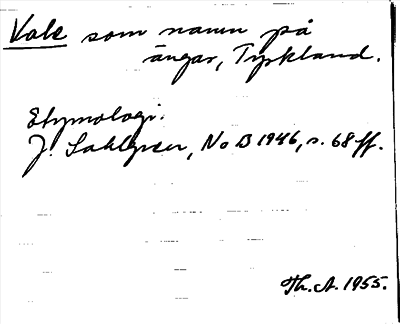 Vale som namn på
ängar, Tyskland.
Etymologi.
J. Sahlgren, NoB 1946, s. 68 ff.
Th. A. 1955.